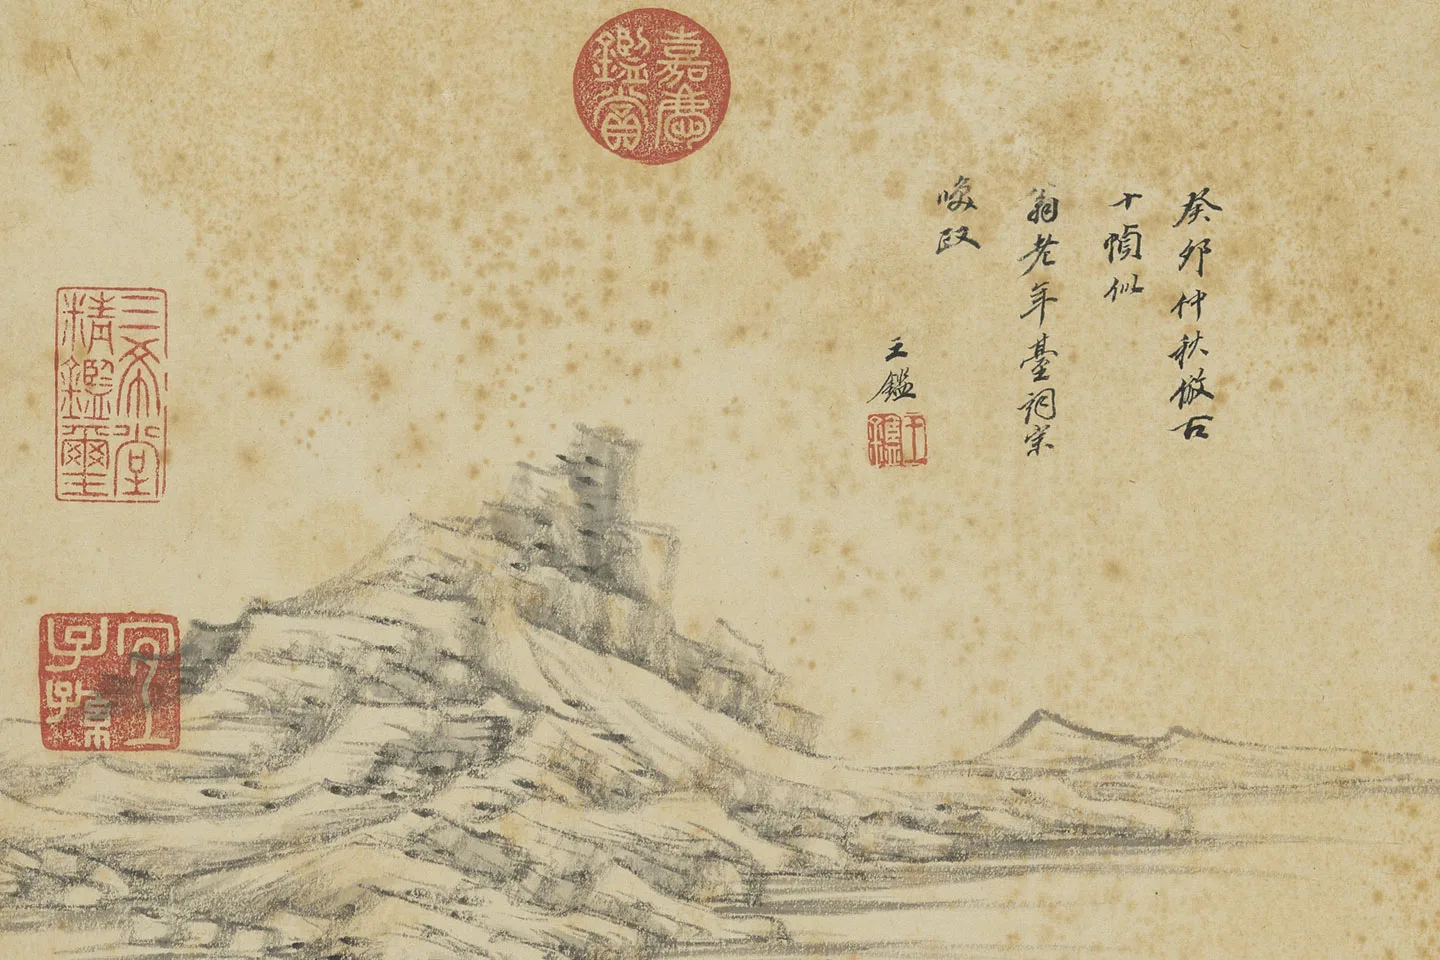 癸卯仲秋倣古
十幀似
翁老年臺詞宗
喚政
王鑑
王鑑
嘉慶鑑賞
三希堂精鑑璽
宜子孫